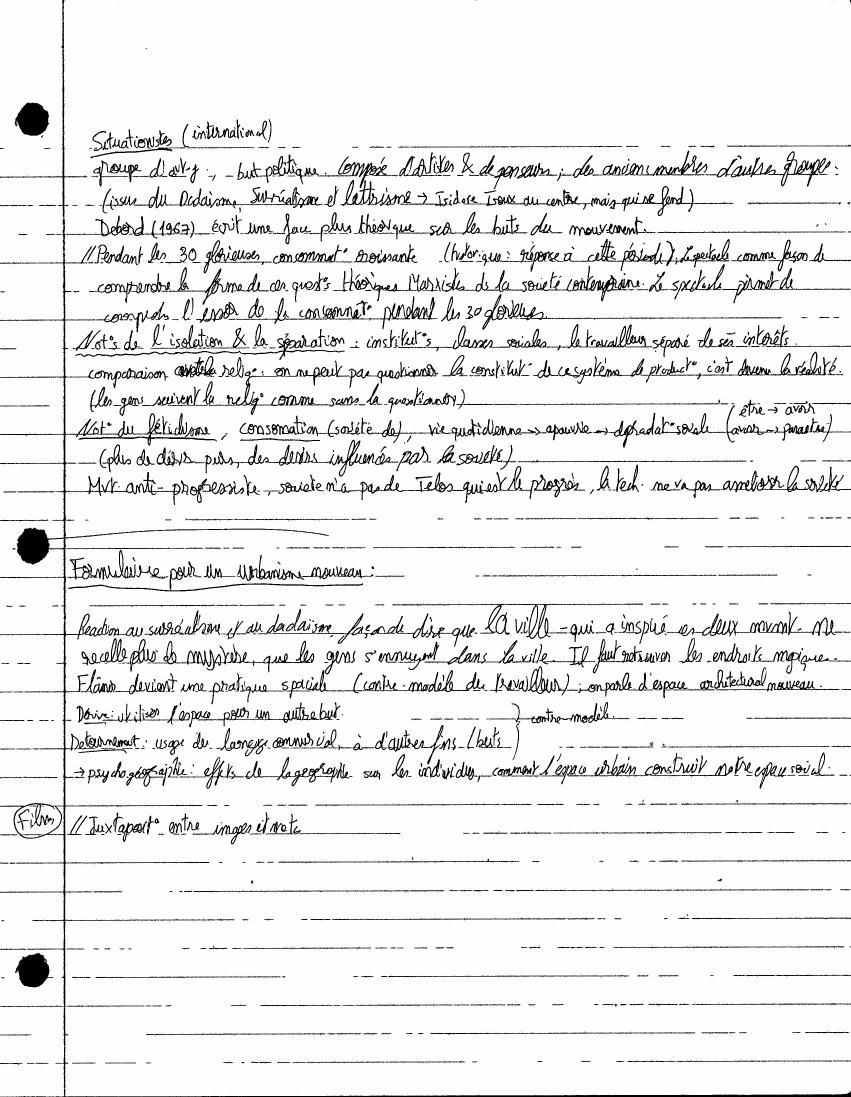 Situationstes (international)
groupe d'avt-g, but politique. Composé d'Artistes & de penseurs; des anciens membres d'autres groupes.
(issus du Dadaisme, Surréalisme et lettrisme → Isidore Isoux au centre, mais qui se fend)
Debord (1967) écrit une face plus théorique sur les buts du mouvement.
// Pendant les 30 glorieuses, consommat° croissante (historique: réponse à cette période), Le spectacle comme façon de
comprendre la forme de ces quest°s théoriques Marxistes de la société contemporaine. Le spectacle permet de
comprendre l'essor de la consommat° pendant les 30 glorieuses.
Not°s de l'isolation & la séparation: institut°s, classes sociales, le travailleur séparé de ses intérêts.
comparaison avec la relig°: on ne peut pas questionner la constitut° de ce système de product°, c'est devenu la réalité.
(les gens suivent la relig° comme sans la questionner)
Not° du fétichisme, consomation (société de), vie quotidienne → apauvrie → dégradat° sociale (être → avoir
(avoir → paraître)
(plus de désirs purs, des desirs influencés par la société)
Mvt anti-progressiste, société n'a pas de Telos qui est le progrès, la tech. ne va pas améliorer la société
Formulaire pour un urbanisme nouveau:
Réaction au surréalisme et au dadaisme, façon de dire que la ville - qui a inspiré ces deux mvmt - ne
recelle plus de mystère, que les gens s'ennuyent dans la ville. Il faut retrouver les endroits magiques.
Flâner devient une pratique spaciale (contre-modèle du travailleur); on parle d'espace architectural nouveau.
Dérive: utiliser l'espace pour un autre but.
} contre-modèle
Detournement: usage du langage commercial, à d'autres fins (buts)
→ psychogéographie: effets de la geographie sur les individus, comment l'espace urbain construit notre espace social.
Film // Juxtaposit° entre images et mots